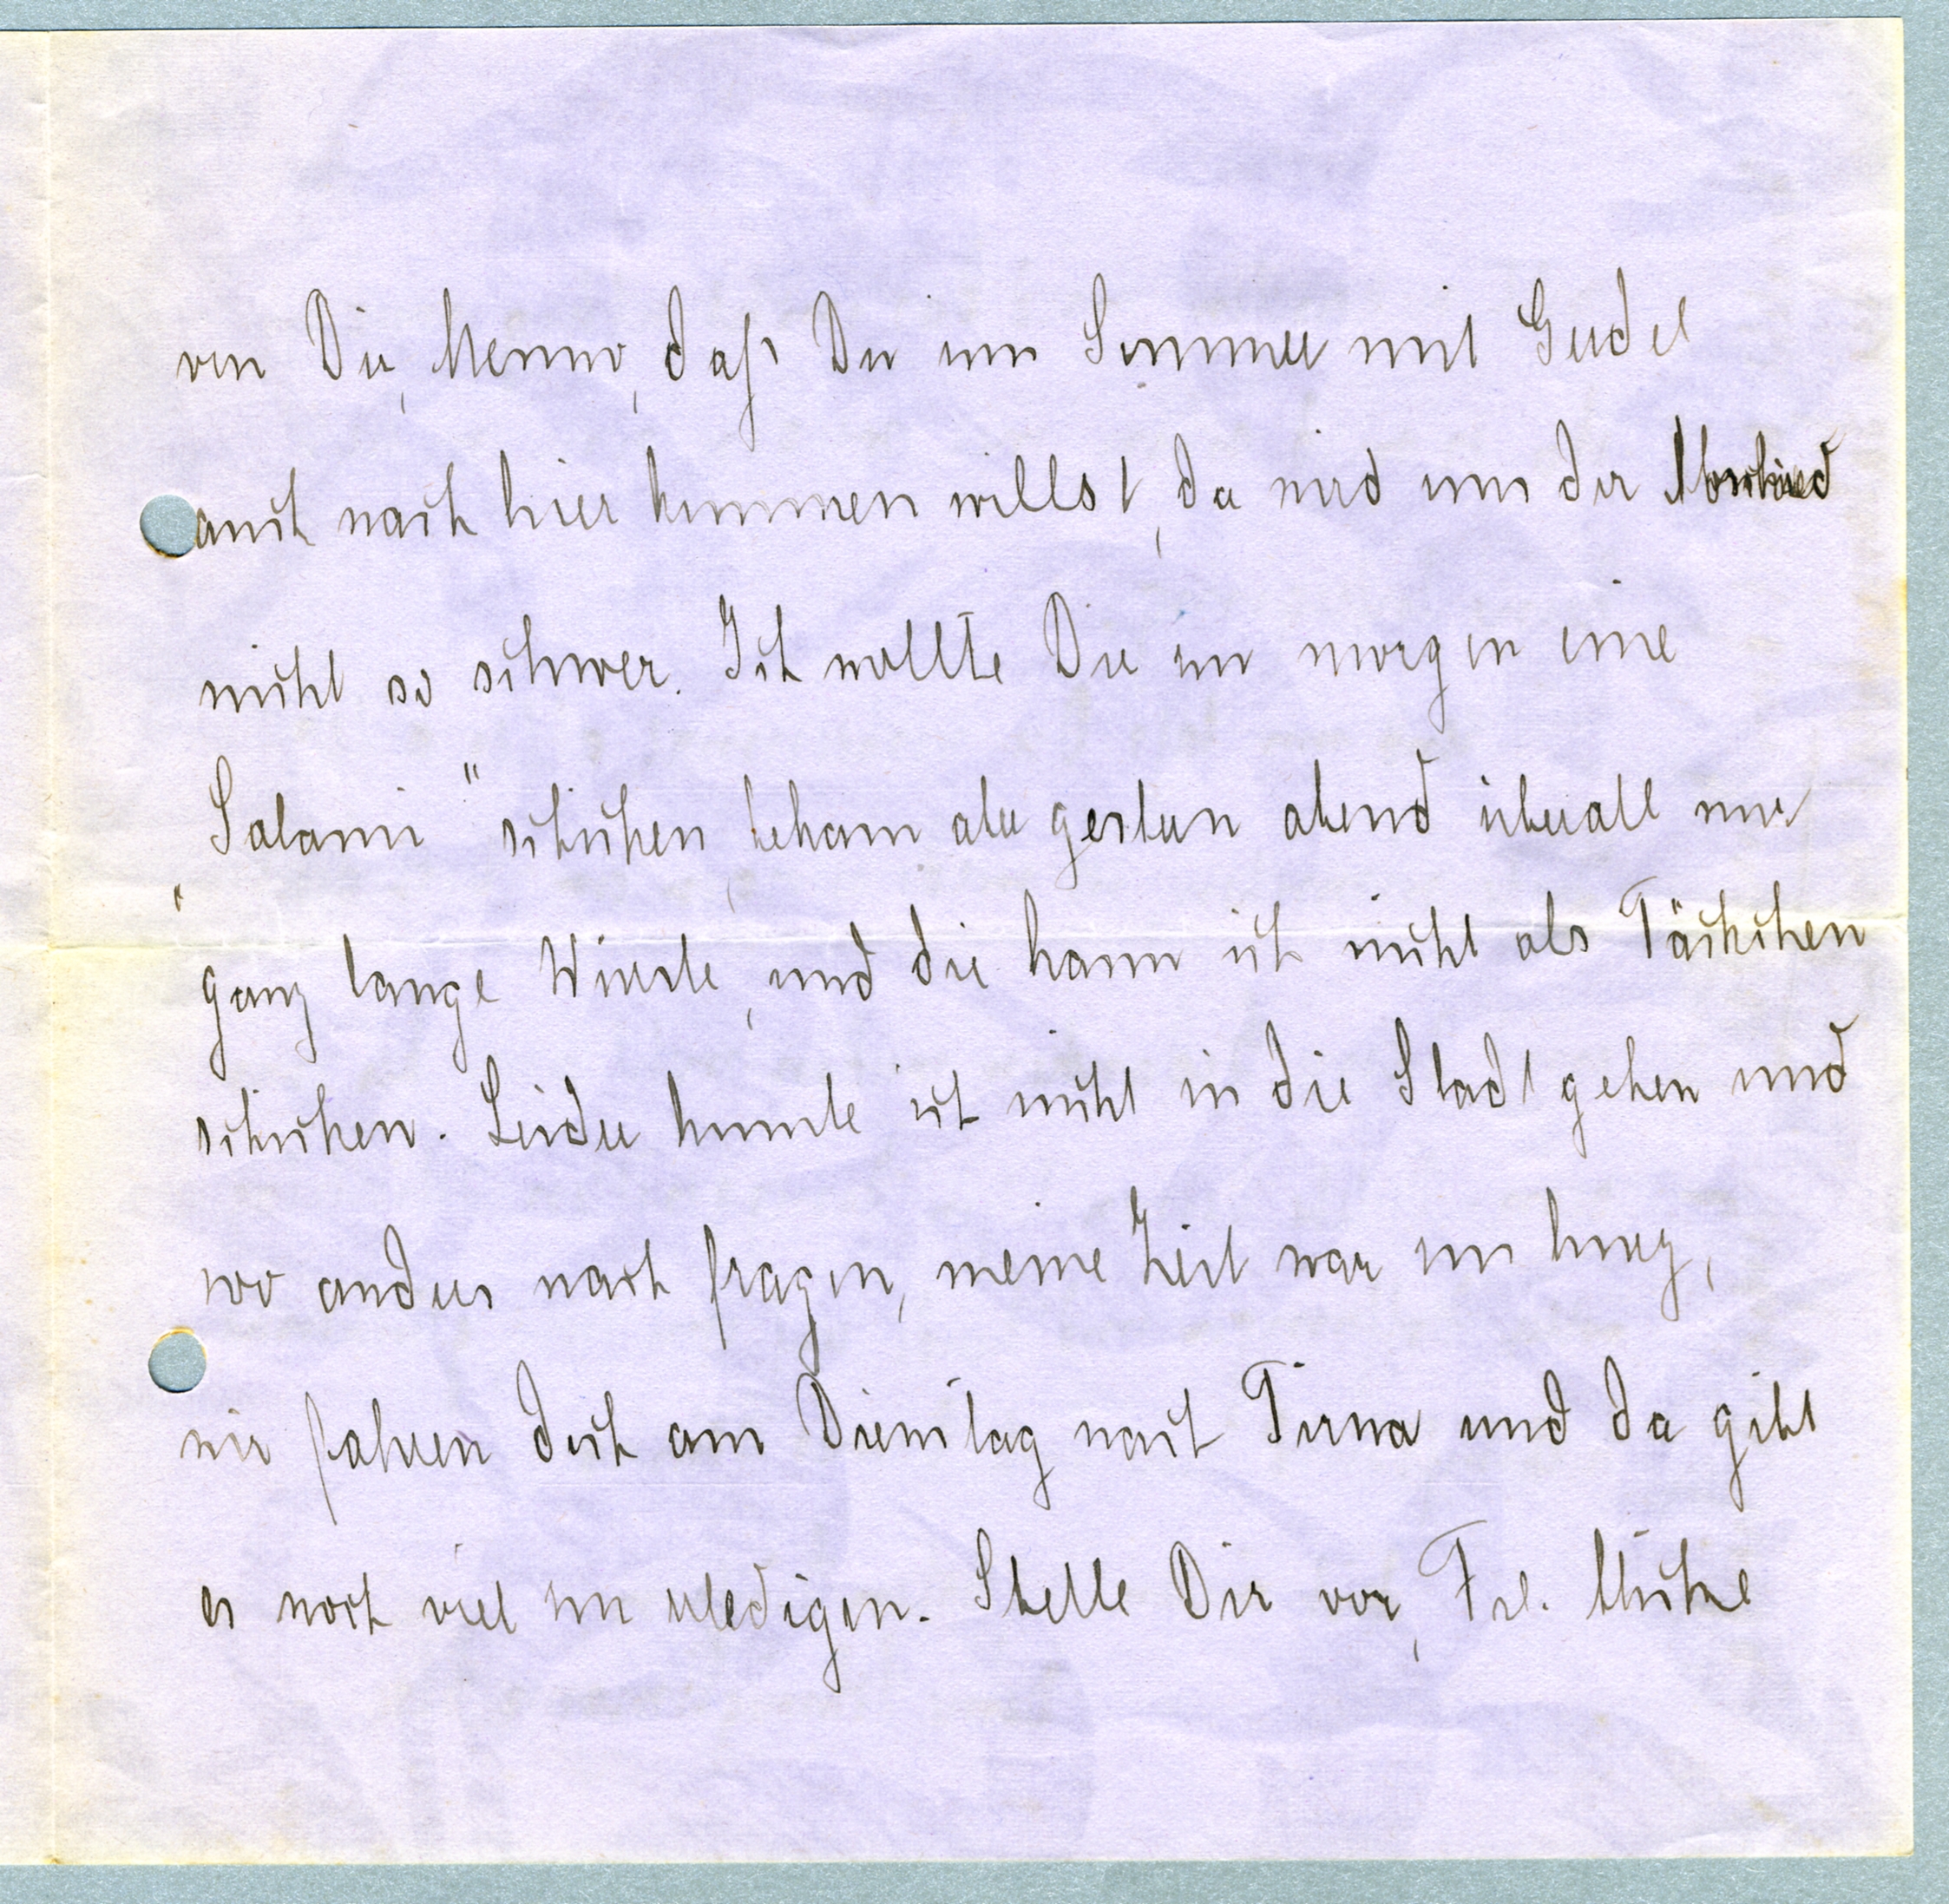 von Dir, Menno, daß Du im Sommer mit Gudel
auch nach hier kommen willst, da wird uns der Abschied
nicht so schwer. Ich wollte Dir zu morgen eine
"Salami" schicken, bekam aber gestern abend überall nur
ganz lange Würste, und die kann ich nicht als Päckchen
schicken. Leider konnte ich nicht in die Stadt gehen und
wo anders nach fragen, meine Zeit war zu kurz,
wir fahren doch am Dienstag nach Pirna und da gibt
es noch viel zu erledigen. Stelle Dir vor, Frl.